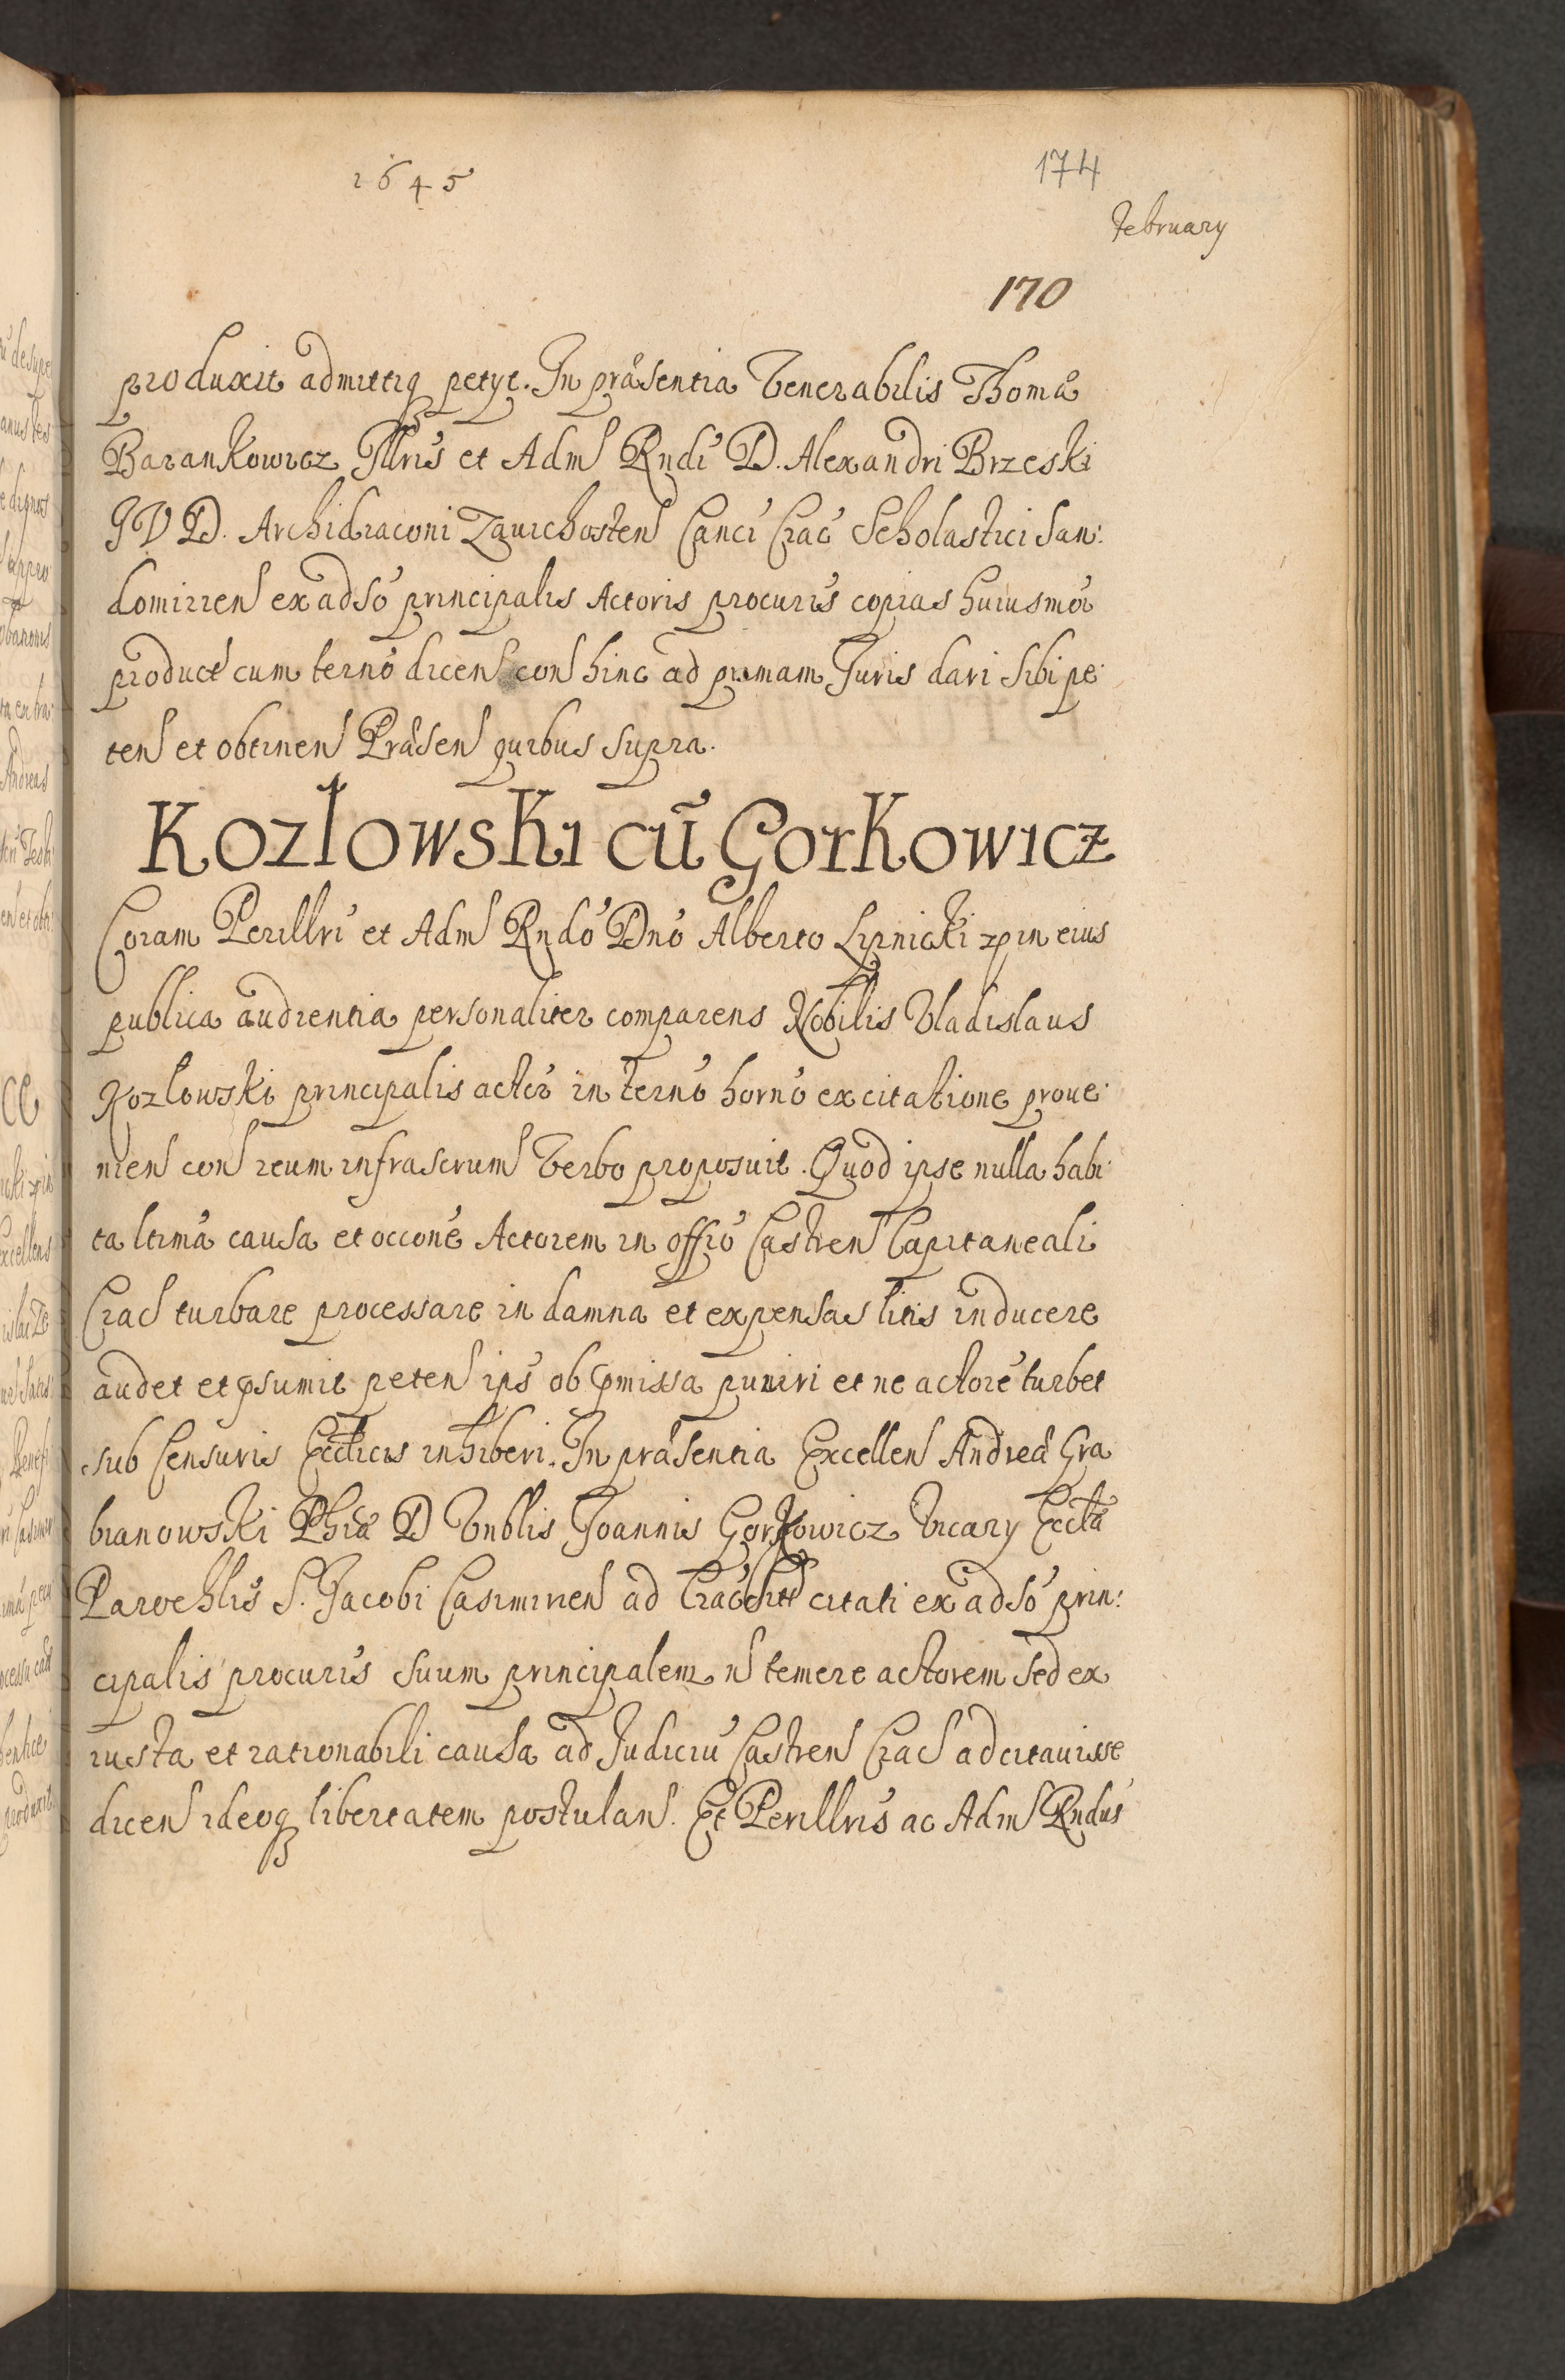 1645
174
February
170
produxit admittiq petyt. In præsentia Venerabilis Thomæ
Barankowicz Illris et Adm Rndi D. Alexandri Brzeski
JVD. Archidiaconi Zauichosten Canci Crac Scholastici San:
domirien ex adso principalis Actoris procuris copias huiusmoi
product cum terno dicen con hinc ad primam Juris dari sibi pe:
ten et obtinen Præsen quibus supra.
Kozłowski cū Gorkowicz
Coram Perillri et Adm Rndo Dno Alberto Lipnicki xp in eius
publica audientia personaliter comparens Nobilis Vladislaus
Kozlowski principalis actor in terno horno ex citatione proue:
nien con reum infrascrum Verbo proposuit. Quod ipse nulla habi:
ta ltima causa et occone Actorem in offio Castren Capitaneali
Crac turbare processare in damna et expensas litis inducere
audet et psumit peten ips ob pmissa puniri et ne actore turbet
sub Censuris Ecclicis inhiberi. In præsentia Excellen Andreæ Gra
bianowski Phiæ D Vnblis Joannis Gorkowicz Vicary Eccla
Parochlis S. Jacobi Casimirien ad Crac citati ex adso prin:
cipalis procuris suum principalem n temere actorem sed ex
iusta et rationabili causa ad Judiciu Castren Crac adcitauisse
dicen ideoq libertatem postulan. Et Perillris ac Adm Rndus